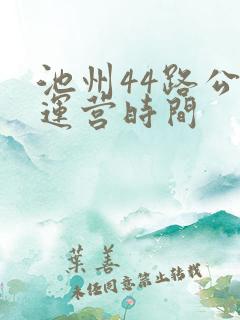 池州44路公
運营時間
葉善
未经同意禁止转载